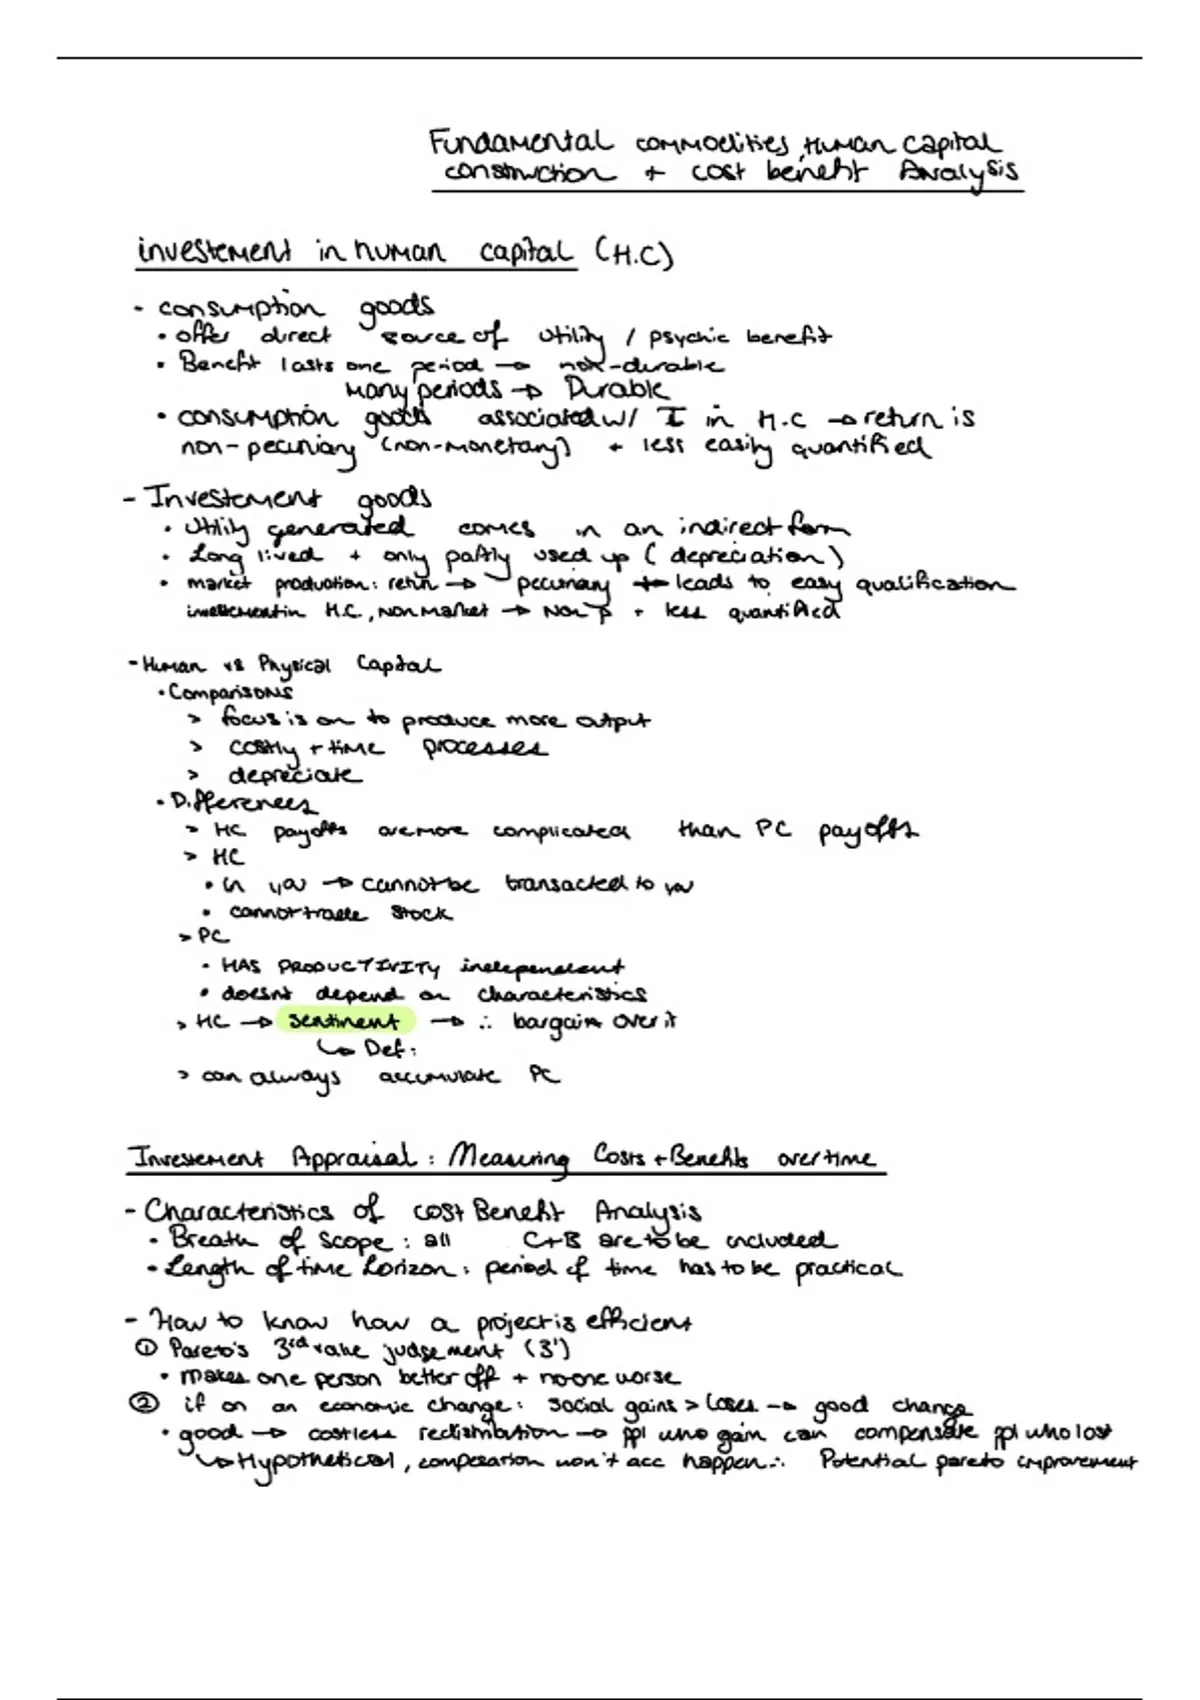 Fundamental commodities, Human capital
construction + cost benefit Analysis
investement in human capital (H.C)
- consumption goods
• offer direct source of utility / psychic benefit
• Benefit lasts one period → non-durable
Many periods → Durable
• consumption goods associated w/ I in H.C → return is
non-pecuniary (non-monetary) + less easily quantified
- Investement goods
• Utility generated comes in an indirect form
• Long lived + only partly used up (depreciation)
• market production: return → pecuniary → leads to easy qualification
investement in H.C, Non Market → Non P + less quantified
- Human vs Physical Capital
• Comparisons
> focus is on to produce more output
> costly + time processes
> depreciate
• Differences
> HC payoffs are more complicated than PC payoffs
> HC
• in you → cannot be transacted to you
• cannot trade stock
> PC
• HAS PRODUCTIVITY independent
• doesnt depend on characteristics
> HC → sentinent → ∴ bargain over it
↳ Def:
> can always accumulate PC
Investement Appraisal: Measuring Costs + Benefits over time
- Characteristics of cost Benefit Analysis
• Breath of Scope: all C+B are to be included
• Length of time horizon: period of time has to be practical
- How to know how a project is efficient
① Pareto's 3rd value judgement (3')
• makes one person better off + no one worse
② if on an economic change: social gains > loses → good change
• good → costless redistribution → ppl who gain can compensate ppl who lost
↳ Hypothetical, compesation won't acc happen ∴ Potential pareto improvement